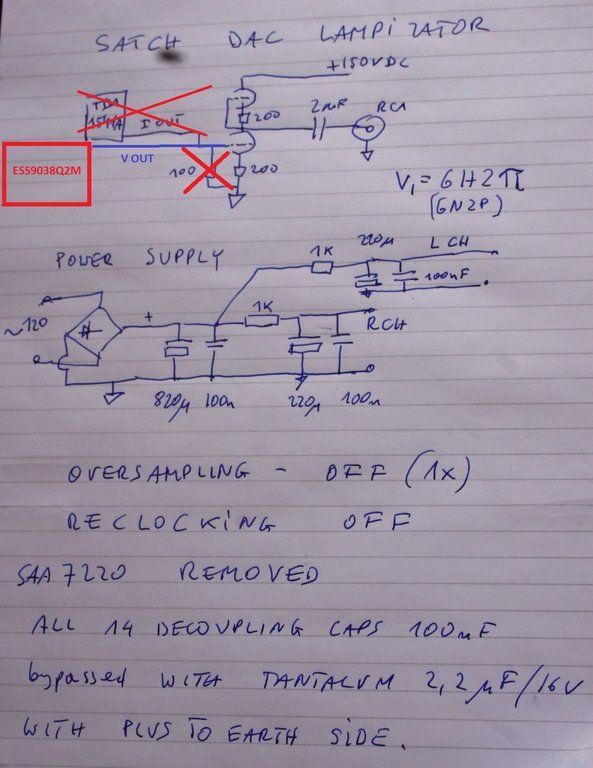 SATCH DAC LAMPIZATOR
+150VDC
TDA
1541A
I OUT
200
2µF
RCA
ESS9038Q2M
V OUT
100
200
V1 = 6H2П
(6N2P)
POWER SUPPLY
1K
220µ
L CH
100nF
~120
+
1K
RCH
820µ
100n
220µ
100n
OVERSAMPLING - OFF (1x)
RECLOCKING OFF
SAA7220 REMOVED
ALL 14 DECOUPLING CAPS 100nF
bypassed WITH TANTALUM 2,2µF/16V
WITH PLUS TO EARTH SIDE.